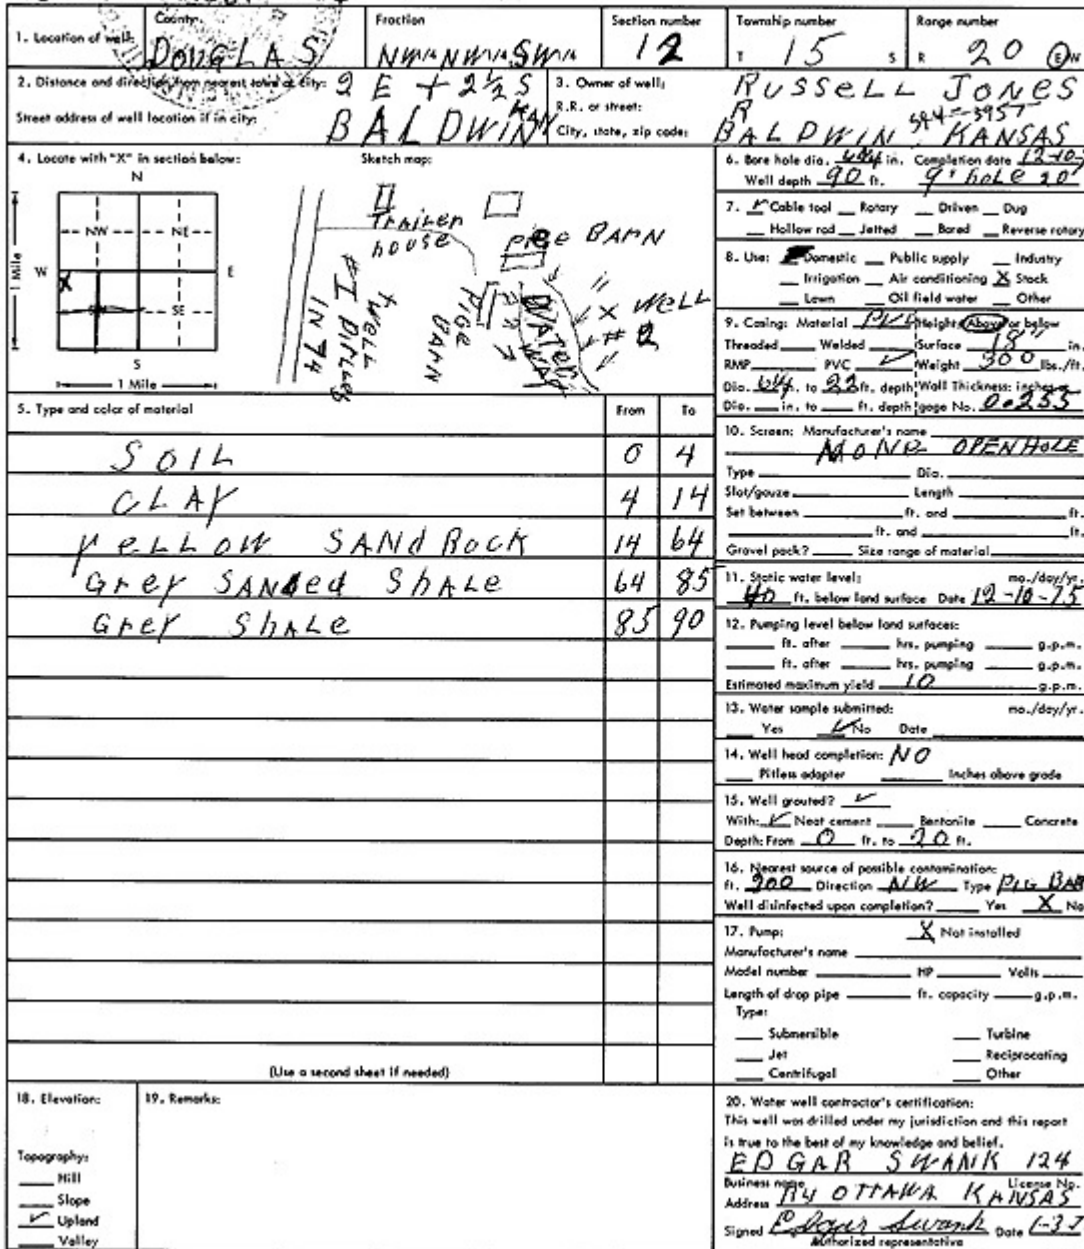 1. Location of well: County: DOUGLAS Fraction NW¼NW¼SW¼ Section number 12 Township number T 15 S Range number R 20 E W
2. Distance and direction from nearest town or city: 2 E + 2½ S
Street address of well location if in city: BALDWIN
3. Owner of well: RUSSELL JONES
R.R. or street: R
594-3957
City, state, zip code: BALDWIN KANSAS
4. Locate with "X" in section below:
N
NW NE
W E
X
SE
S
1 Mile
1 Mile
Sketch map:
TrAILer house
BARN
PIGE BARN
WATER WAY
X WELL
WELL #1 IN 74
5. Type and color of material From To
SOIL 0 4
CLAY 4 14
YeLLOW SANd ROCK 14 64
Grey SANded ShALe 64 85
Grey ShALe 85 90
(Use a second sheet if needed)
6. Bore hole dia. in. Completion date 12-10-
Well depth 90 ft. 9" hole 20'
7. ✓ Cable tool Rotary Driven Dug
Hollow rod Jetted Bored Reverse rotary
8. Use: Domestic Public supply Industry
Irrigation Air conditioning X Stock
Lawn Oil field water Other
9. Casing: Material PVC Height: Above or below
Threaded Welded Surface 18" in.
RMP PVC ✓ Weight 300 lbs./ft.
Dia. in. to 22 ft. depth Wall Thickness: inches or
Dia. in. to ft. depth gage No. 0.255
10. Screen: Manufacturer's name
NONE OPEN HOLE
Type Dia.
Slot/gauze Length
Set between ft. and ft.
ft. and ft.
Gravel pack? Size range of material
11. Static water level: mo./day/yr.
40 ft. below land surface Date 12-10-75
12. Pumping level below land surfaces:
ft. after hrs. pumping g.p.m.
ft. after hrs. pumping g.p.m.
Estimated maximum yield 10 g.p.m.
13. Water sample submitted: mo./day/yr.
Yes ✓ No Date
14. Well head completion: NO
Pitless adapter Inches above grade
15. Well grouted? ✓
With: ✓ Neat cement Bentonite Concrete
Depth: From 0 ft. to 20 ft.
16. Nearest source of possible contamination:
ft. 300 Direction NW Type PIG BAR
Well disinfected upon completion? Yes X No
17. Pump: X Not installed
Manufacturer's name
Model number HP Volts
Length of drop pipe ft. capacity g.p.m.
Type:
Submersible Turbine
Jet Reciprocating
Centrifugal Other
18. Elevation:
Topography:
Hill
Slope
✓ Upland
Valley
19. Remarks:
20. Water well contractor's certification:
This well was drilled under my jurisdiction and this report
is true to the best of my knowledge and belief.
EDGAR SWANK 124
Business name License No.
Address R4 OTTAWA KANSAS
Signed Edgar Swank Date
Authorized representative